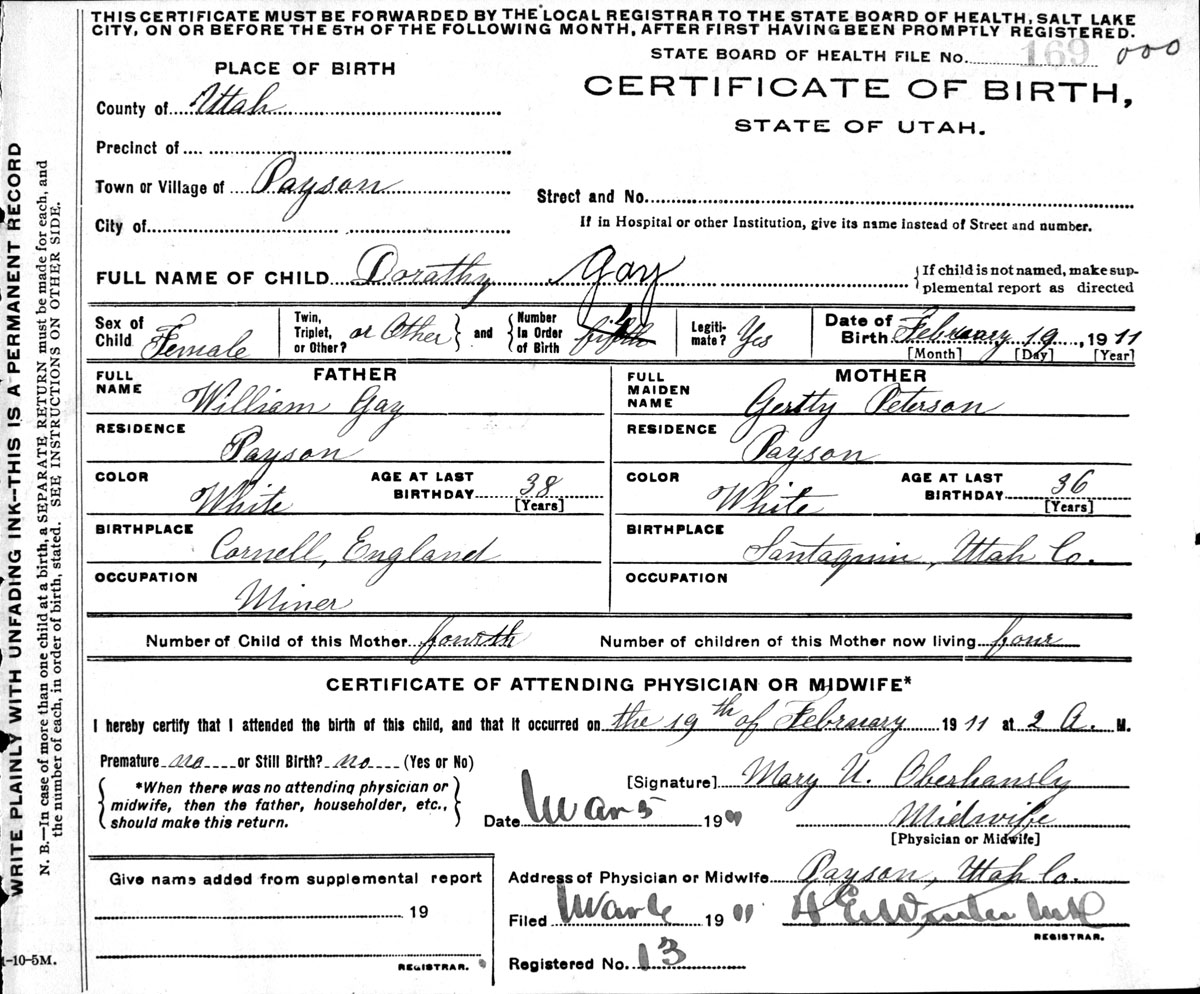 THIS CERTIFICATE MUST BE FORWARDED BY THE LOCAL REGISTRAR TO THE STATE BOARD OF HEALTH, SALT LAKE
CITY, ON OR BEFORE THE 5TH OF THE FOLLOWING MONTH, AFTER FIRST HAVING BEEN PROMPTLY REGISTERED.
STATE BOARD OF HEALTH FILE No. 169 000
PLACE OF BIRTH
CERTIFICATE OF BIRTH,
STATE OF UTAH.
County of Utah
Precinct of
Town or Village of Payson
Street and No.
City of
If in Hospital or other Institution, give its name instead of Street and number.
FULL NAME OF CHILD Dorathy Gay
{If child is not named, make sup-
plemental report as directed
Sex of Child Female
Twin, Triplet, or Other? or Other } and { Number In Order of Birth fifth
Legiti-mate? Yes
Date of Birth February 19, 1911
[Month] [Day] [Year]
FATHER
FULL NAME William Gay
RESIDENCE Payson
COLOR White AGE AT LAST BIRTHDAY 38 [Years]
BIRTHPLACE Cornell, England
OCCUPATION Miner
MOTHER
FULL MAIDEN NAME Gertty Peterson
RESIDENCE Payson
COLOR White AGE AT LAST BIRTHDAY 36 [Years]
BIRTHPLACE Santaquin, Utah Co.
OCCUPATION
Number of Child of this Mother fourth Number of children of this Mother now living four
CERTIFICATE OF ATTENDING PHYSICIAN OR MIDWIFE*
I hereby certify that I attended the birth of this child, and that it occurred on the 19th of February 1911 at 2 A. M.
Premature no or Still Birth? no (Yes or No)
{ *When there was no attending physician or
midwife, then the father, householder, etc.,
should make this return. }
[Signature] Mary U. Oberhansly
Date Mar 5 1911 Midwife
[Physician or Midwife]
Give name added from supplemental report
19
REGISTRAR.
Address of Physician or Midwife Payson, Utah Co.
Filed Mar 6 1911 H E Winter MD
REGISTRAR.
Registered No. 13
1-10-5M.
WRITE PLAINLY WITH UNFADING INK—THIS IS A PERMANENT RECORD
N. B.—In case of more than one child at a birth a SEPARATE RETURN must be made for each, and
the number of each, in order of birth, stated. SEE INSTRUCTIONS ON OTHER SIDE.